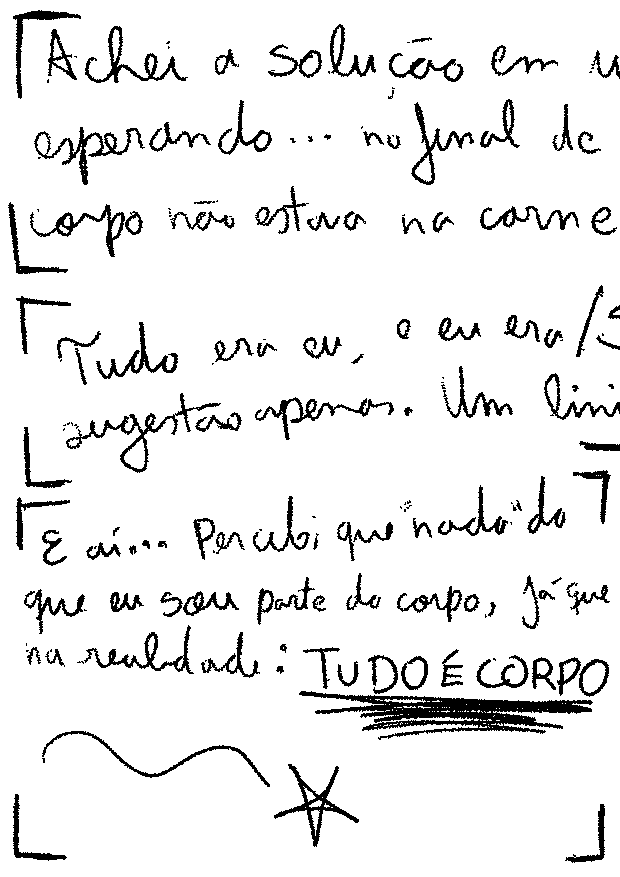 Achei a solução em u
esperando... no final de
corpo não estava na carne
Tudo era eu, e eu era /S
sugestão apenas. Um lini
E aí... Percebi que "nada" do
que eu sou parte do corpo, já que
na realidade: TUDO É CORPO